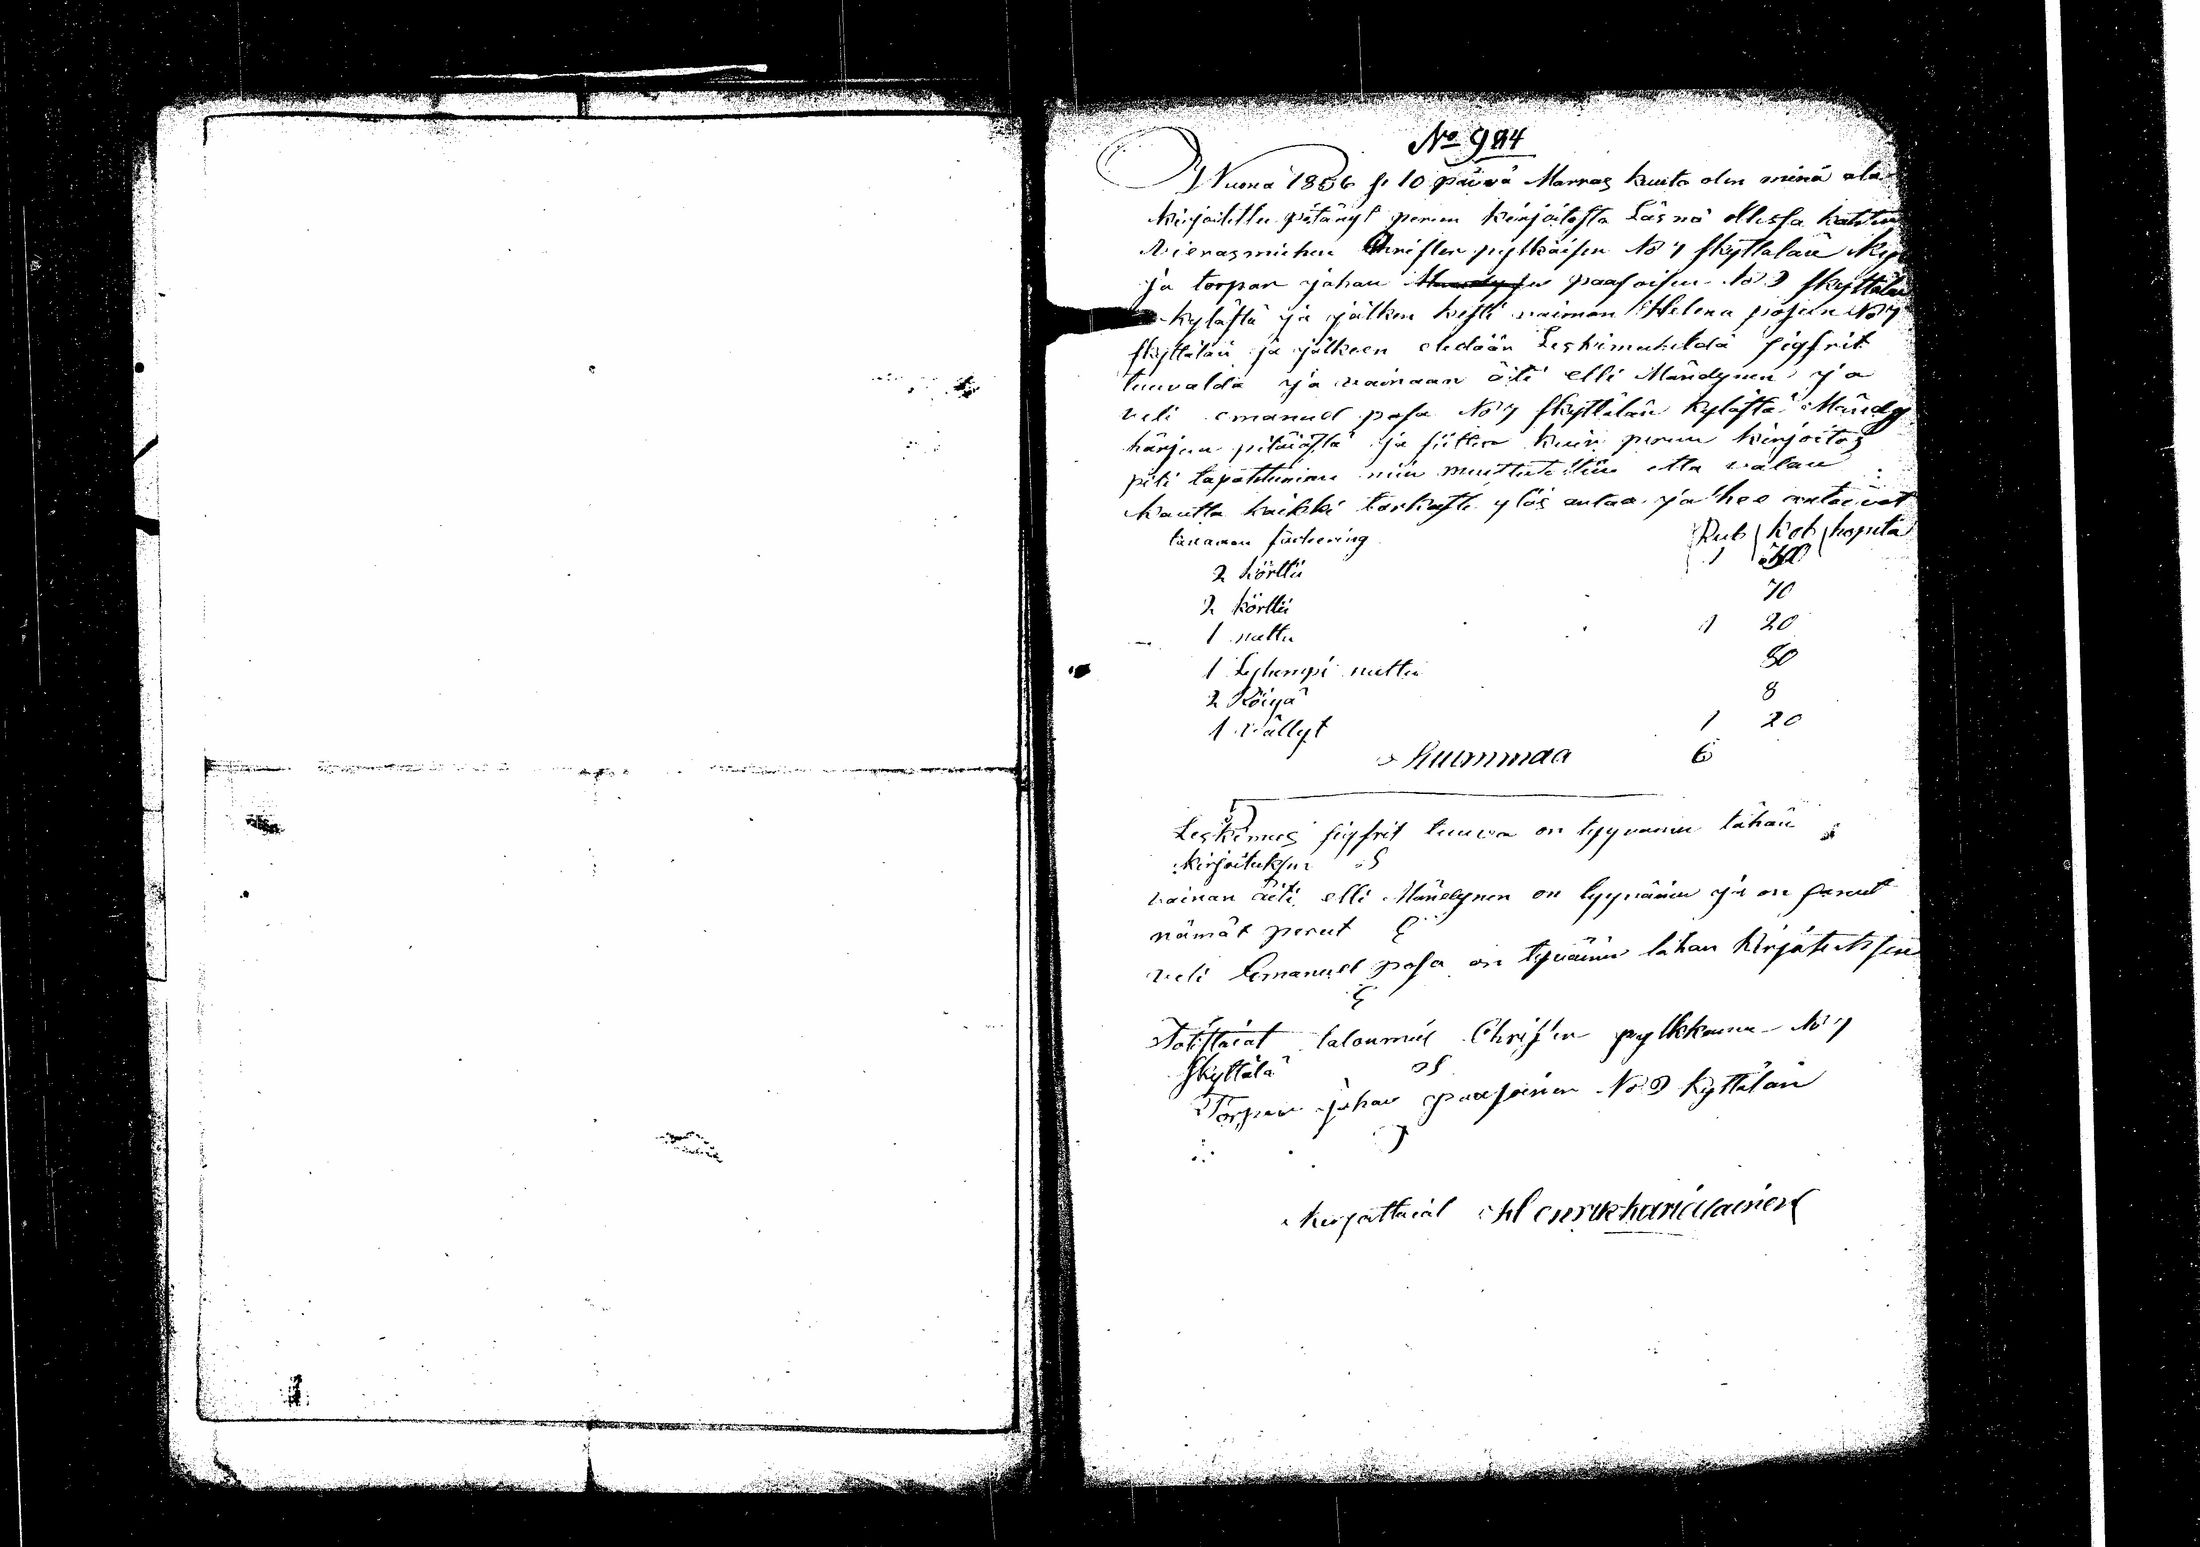 No 984
Wuona 1856 se 10 päivä Marras kuuta olen minä ala
kirjoitettu pitänyt perun kirjoitosta Läsnä ollessa kahten
Vierasmiehen Christer pylkäisen No 7 skyttalan
ja torpar johan paasoisen No 9 skyttälän
kylästä ja jälken kesti vaimon Helena posun No 7
skyttälän ja jälkeen eledään Leskimieheldä sigfrit
tuuvalda ja vainaan äiti elli Mändynen ja
veli emanuel posa No 7 skyttälän kylästä Mändy
härjun pitäiästä ja sitten kuin perun kirjoitos
piti tapahtuman niin muistutettiin etta valan
kautta kaikki tarkasti ylös antaa ja hee antoivat
tavaran
Rub kob hopiata
2 körttii 1
2 körttii 70
1 nuttu 1 20
1 Lyhempi nuttu 80
2 Röijä 8
1 vällyt 1 20
Summaa 6
Leskimies sigfrit tuuva on tyyväinen tähän
kirjoituksen
vainan äiti elli Mändynen on tyyväinen ja on sanut
nämät perut
veli Emanuel posa on tyväinen tähan kirjotuksen
Totistaiat talonmies Christer pylkkänen No 7
skyttälä
Torpar johan paasoinen No 9 kyttälän
kirjottaiat Henrik hanälainen